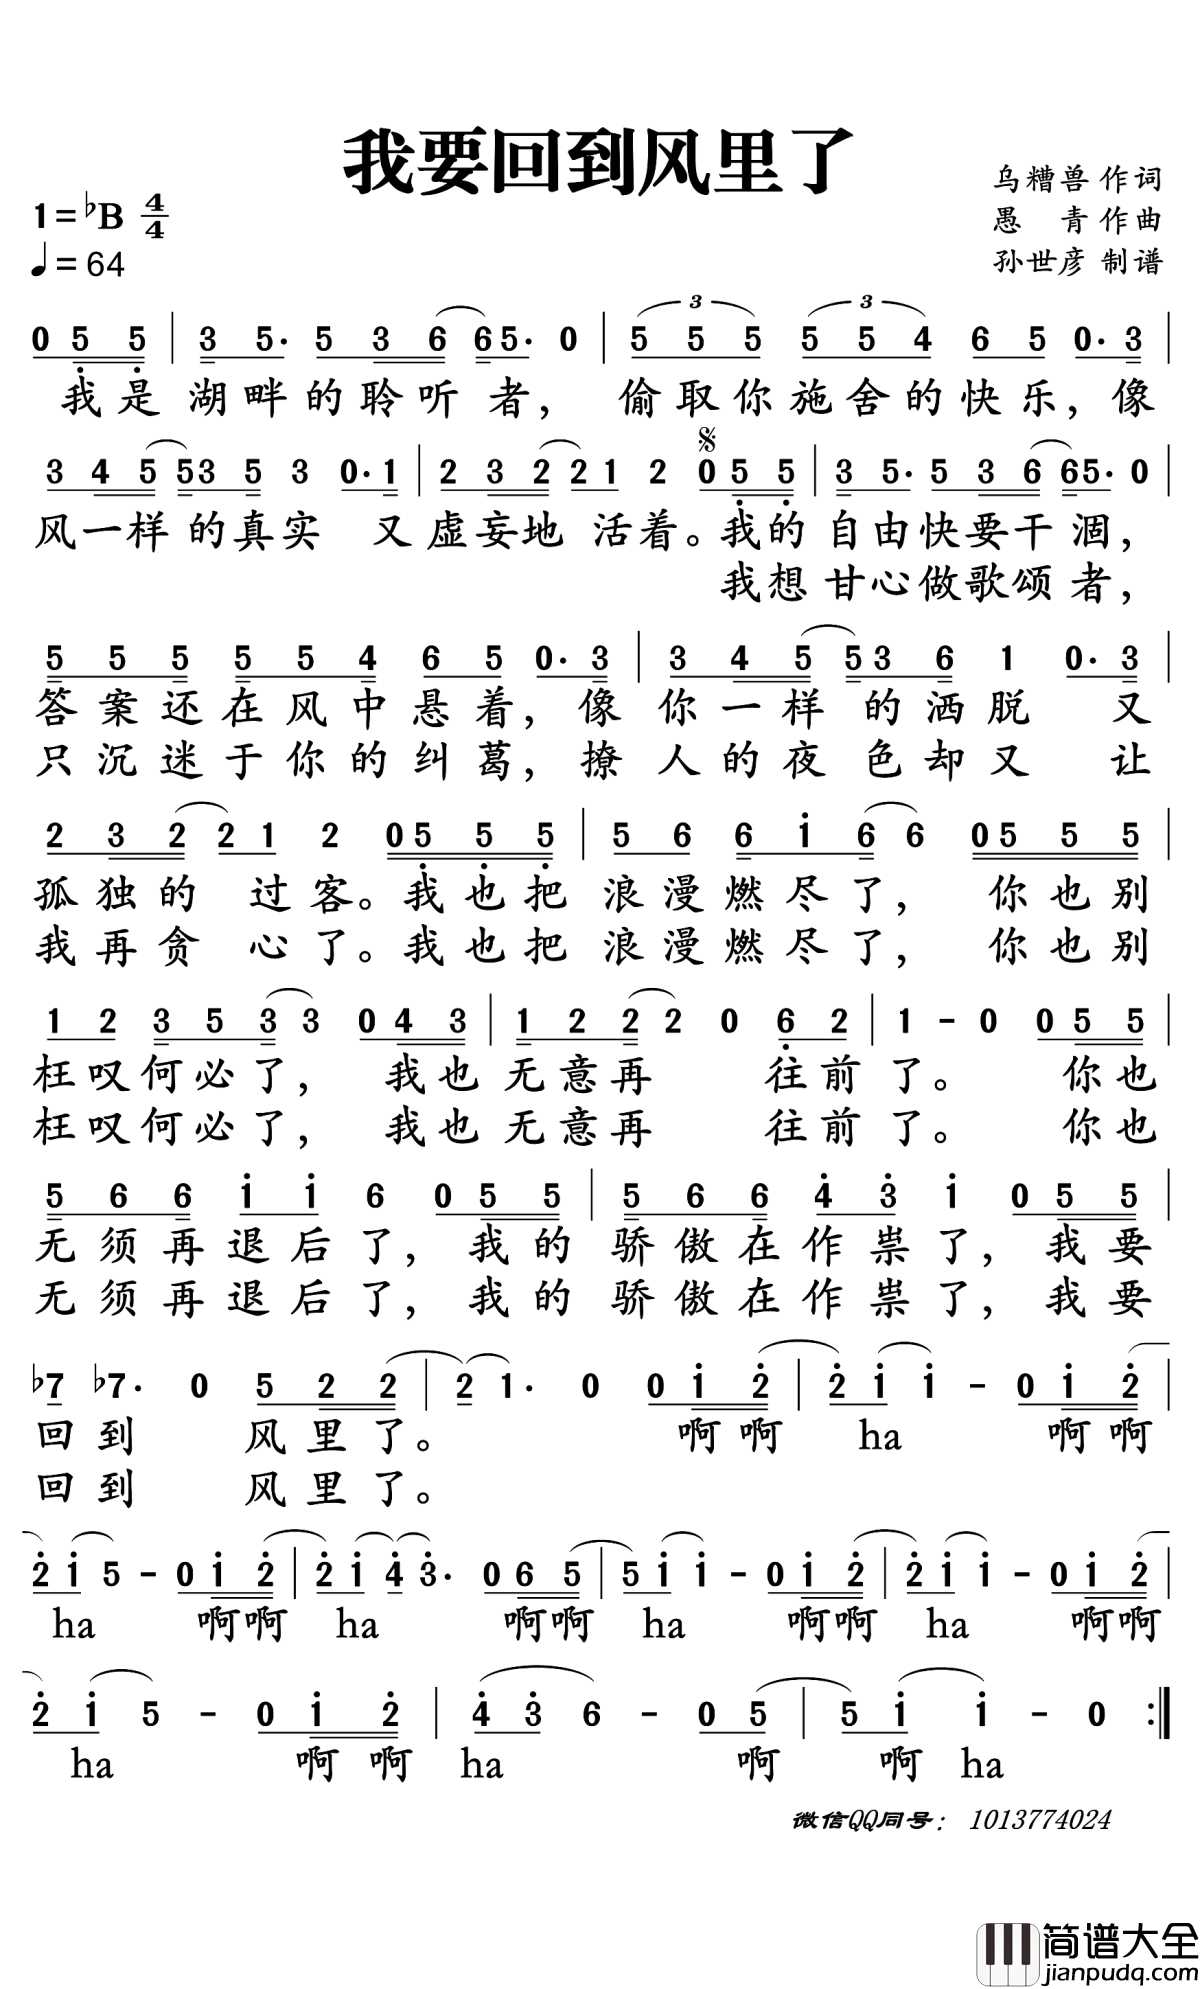 我要回到风里了
乌糟兽 作词
1=♭B 4/4
愚 青 作曲
♩=64
孙世彦 制谱
0 5 5 | 3 5· 5 3 6 6 5· 0 | 5 5 5 5 5 4 6 5 0· 3 |
我是 湖畔的聆听 者, 偷取你施舍的快乐, 像
3 4 5 5 3 5 3 0· 1 | 2 3 2 2 1 2 0 5 5 | 3 5· 5 3 6 6 5· 0 |
风一样 的真实 又 虚妄地 活着。我的 自由快要干涸,
我想 甘心做歌颂者,
5 5 5 5 5 4 6 5 0· 3 | 3 4 5 5 3 6 1 0· 3 |
答案还在风中悬着, 像 你一样 的洒脱 又
只沉迷于你的纠葛, 撩 人的夜 色却又 让
2 3 2 2 1 2 0 5 5 5 | 5 6 6 1 6 6 0 5 5 5 |
孤独的 过客。我也把 浪漫燃尽了, 你也别
我再贪 心了。我也把 浪漫燃尽了, 你也别
1 2 3 5 3 3 0 4 3 | 1 2 2 2 0 6 2 | 1 - 0 0 5 5 |
枉叹何必了, 我也 无意再 往前 了。 你也
枉叹何必了, 我也 无意再 往前 了。 你也
5 6 6 1 1 6 0 5 5 | 5 6 6 4 3 1 0 5 5 |
无须再退后了, 我的 骄傲在作祟了, 我要
无须再退后了, 我的 骄傲在作祟了, 我要
♭7 ♭7· 0 5 2 2 | 2 1· 0 0 1 2 | 2 1 1 - 0 1 2 |
回到 风里了。 啊啊 ha 啊啊
回到 风里了。
2 1 5 - 0 1 2 | 2 1 4 3· 0 6 5 | 5 1 1 - 0 1 2 | 2 1 1 - 0 1 2 |
ha 啊啊 ha 啊啊 ha 啊啊 ha 啊啊
2 1 5 - 0 1 2 | 4 3 6 - 0 5 | 5 1 1 - 0 :|
ha 啊啊 ha 啊 啊 ha
微信QQ同号: 1013774024
简谱大全
jianpudq.com